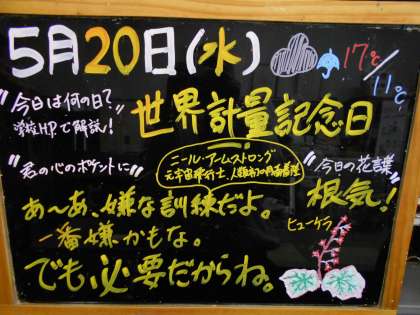 5月20日(水)
17℃/11℃
"今日は何の日?"
学校HPで解説!
世界計量記念日
"君の心のポケントに"
ニール・アームストロング
元宇宙飛行士、人類初の月面着陸
"今日の花言葉"
根気!
ヒューケラ
あ〜あ、嫌な訓練だよ。
一番嫌かもな。
でも必要だからね。